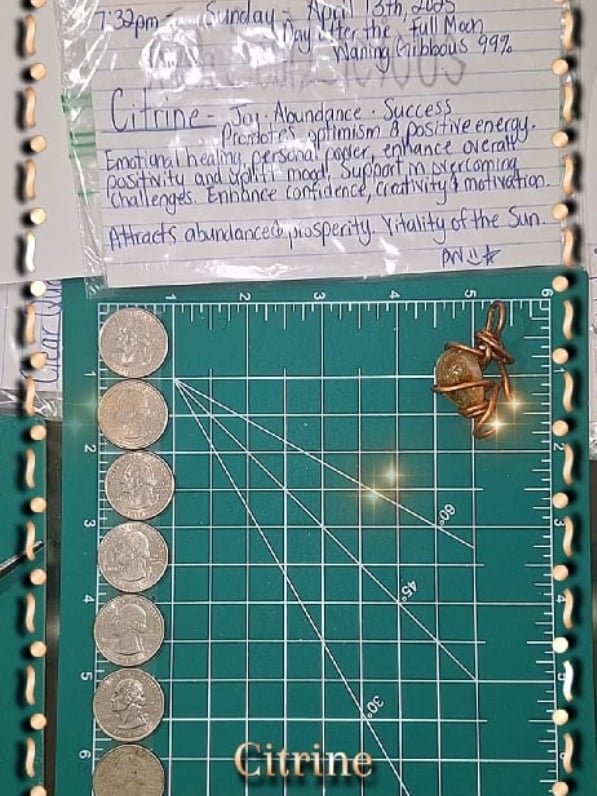 7:32pm - Sunday - April 13th, 2025
Day after the Full Moon
Waning Gibbous 99%
Citrine - Joy · Abundance · Success
Promotes optimism & positive energy.
Emotional healing, personal power, enhance overall
positivity and uplift mood. Support in overcoming
challenges. Enhance confidence, creativity & motivation.
Attracts abundance & prosperity. Vitality of the Sun.
Clear
1 2 3 4 5 6
1
2
3
4
5
6
1
2
3
4
5
6
60°
45°
30°
Citrine